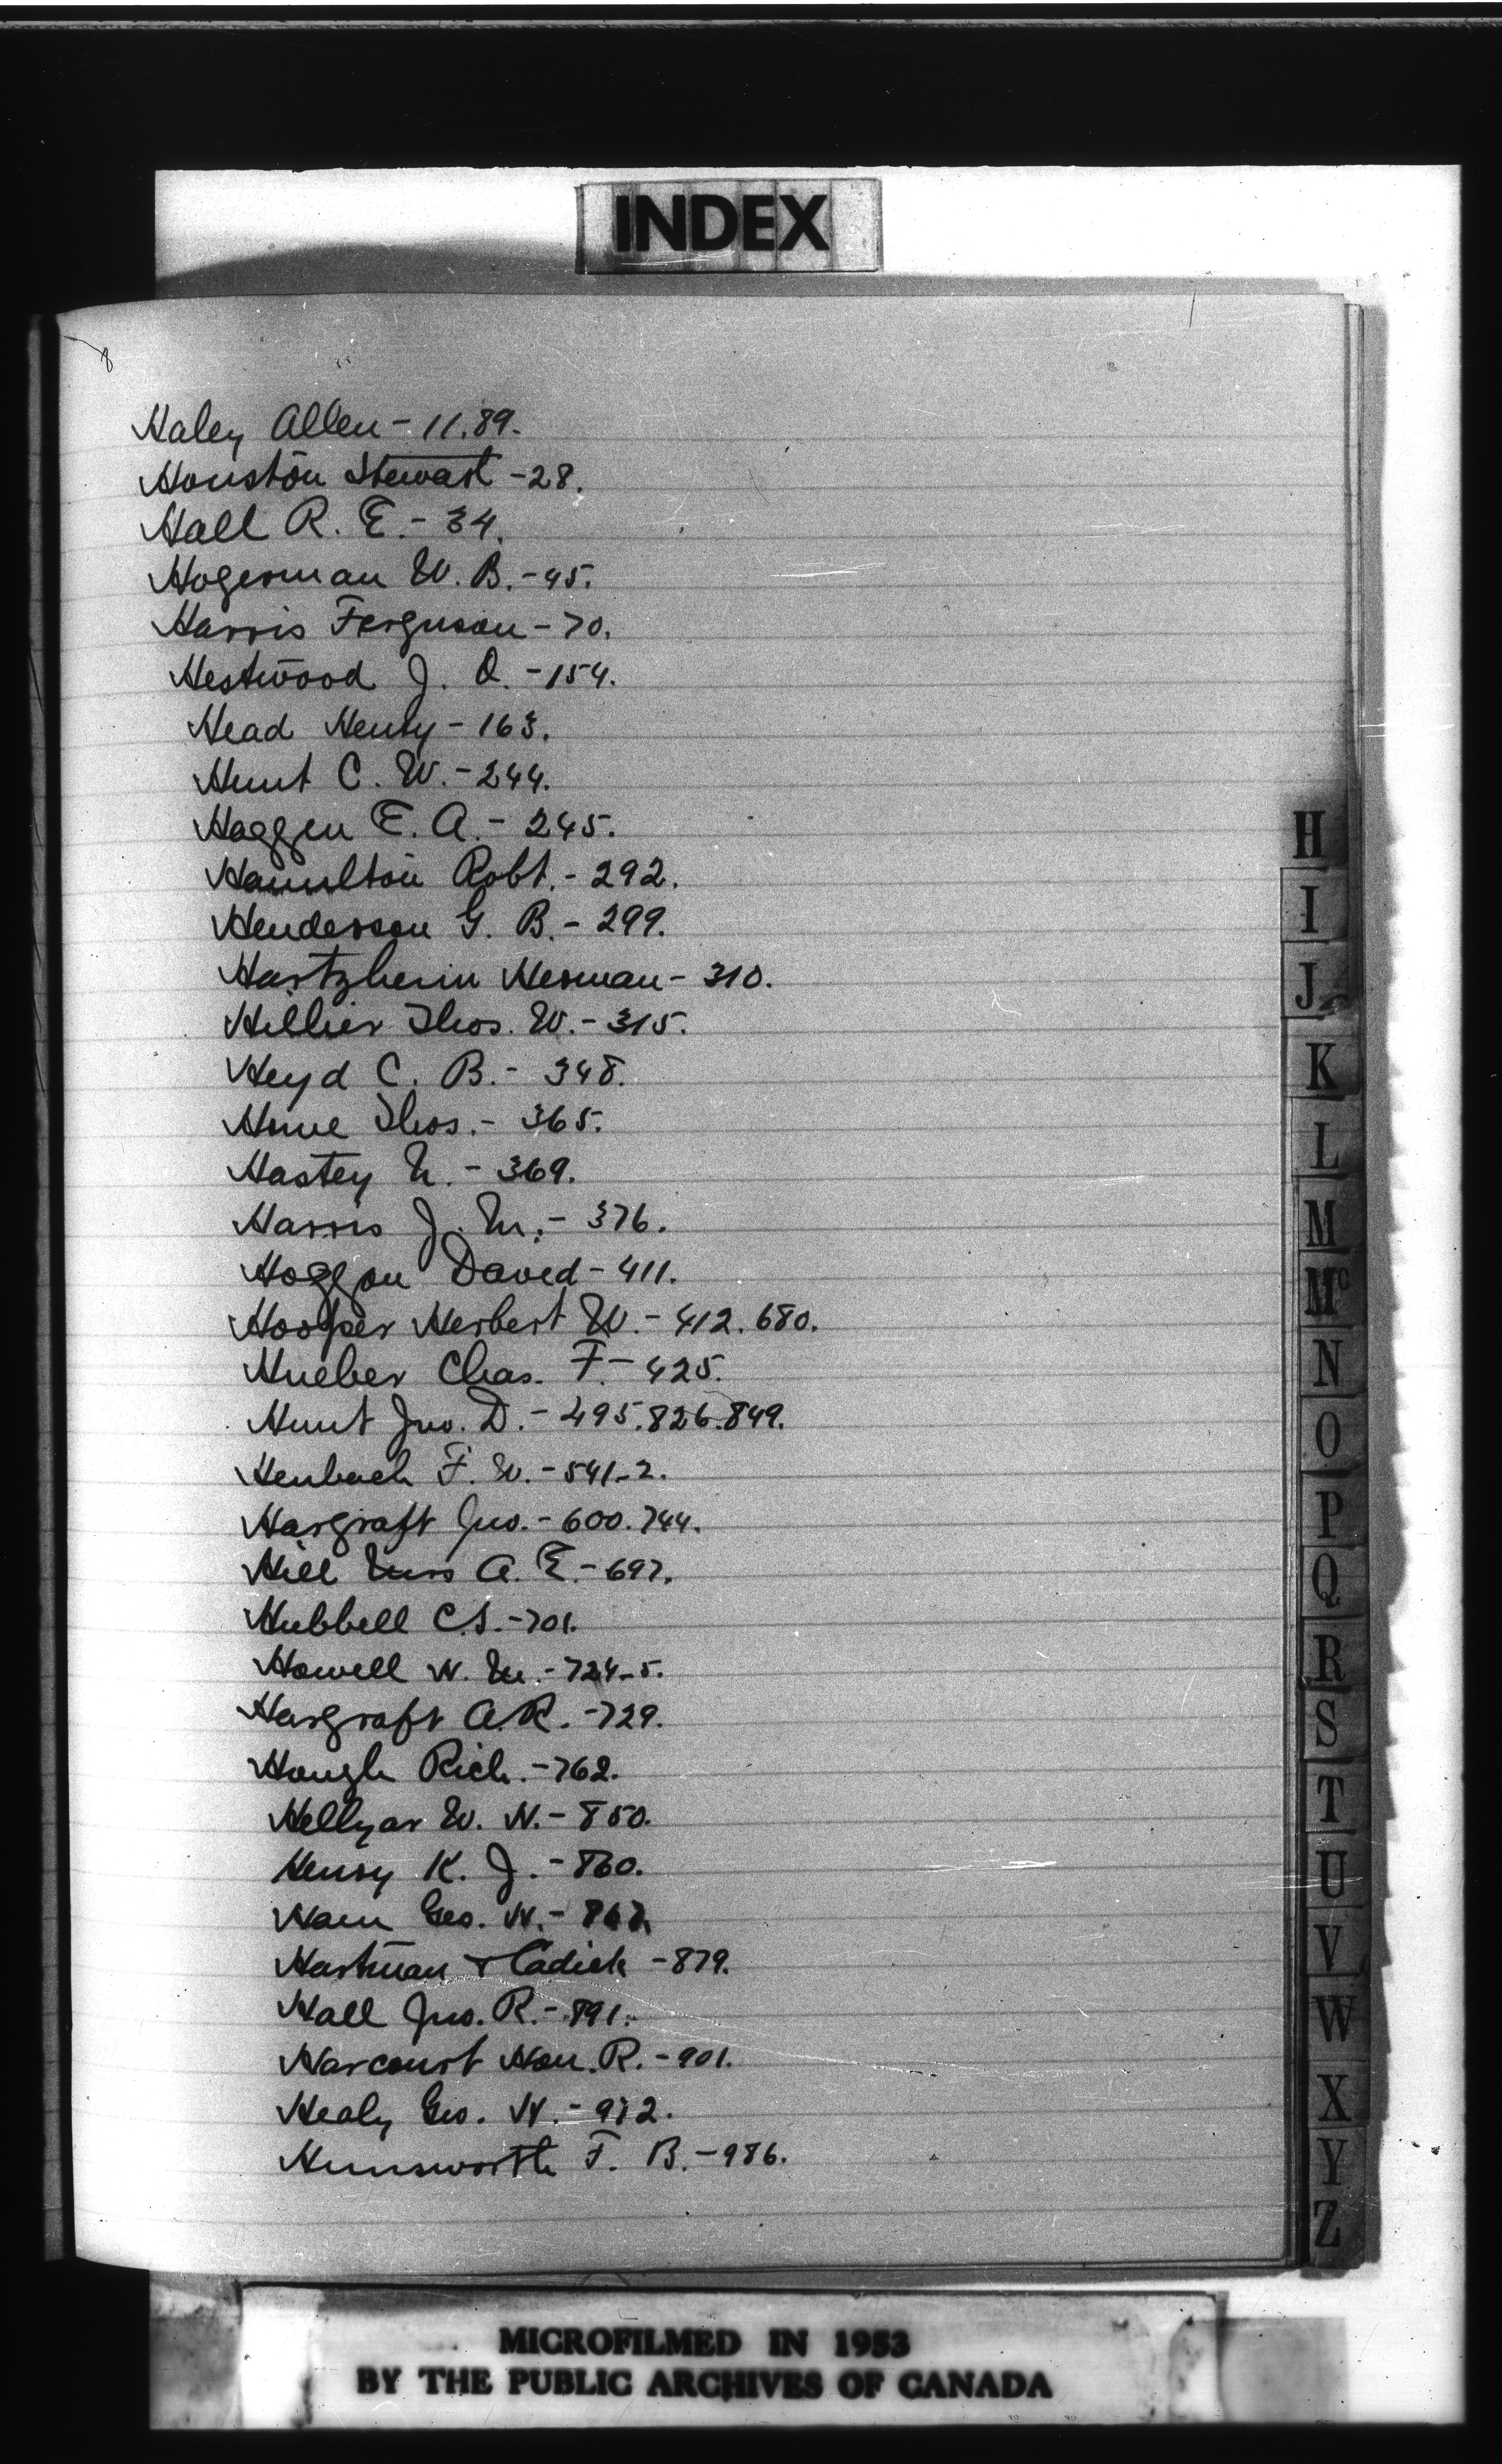 INDEX
8
Haley Allen - 11.89.
Houston Stewart - 28.
Hall R. E. - 34.
Hogerman W. B. - 45.
Harris Ferguson - 70.
Hestwood J. O. - 154.
Head Henry - 163.
Hunt C. W. - 244.
Haggen E. A. - 245.
Hamilton Robt. - 292.
Henderson G. B. - 299.
Hartzheim Herman - 310.
Hillier Thos. W. - 315.
Heyd C. B. - 348.
Howe Thos. - 365.
Hastey N. - 369.
Harris J. M. - 376.
Hoggan David - 411.
Hooper Herbert W. - 412. 680.
Hueber Chas. F. - 425.
Hunt Jno. D. - 495. 826. 849.
Heubach F. W. - 541-2.
Hargraft Jno. - 600. 744.
Hill Miss A. E. - 697.
Hubbell C.S. - 701.
Howell H. M. - 724-5.
Hargraft A.R. - 729.
Hough Rich. - 762.
Hellyar W. H. - 850.
Henry K. J. - 860.
Ham Geo. H. -
Hartman & Cadick - 879.
Hall Jno. R. - 891.
Harcourt Hon. R. - 901.
Healy Geo. W. - 972.
Hunsworth F. B. - 986.
H
I
J
K
L
M
Mc
N
O
P
Q
R
S
T
U
V
W
X
Y
Z
MICROFILMED IN 1953
BY THE PUBLIC ARCHIVES OF CANADA